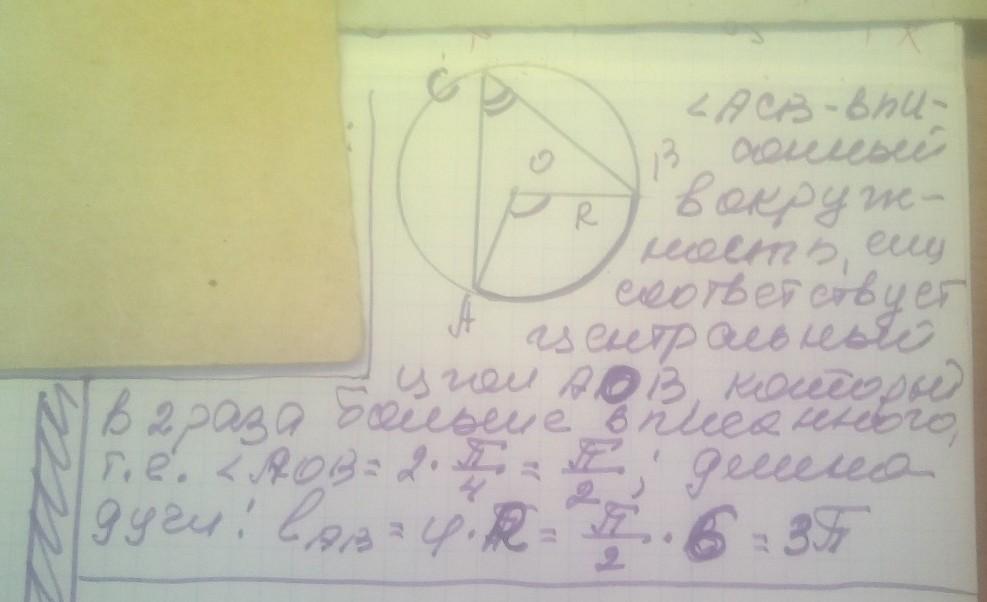 C
O
B
R
A
<ACB - впи-
санный
в окруж-
ность, ему
соответствует
центральный
угол AOB, который
в 2 раза больше вписанного,
т.е. <AOB = 2 · π/4 = π/2; длина
дуги: l_AB = φ · R = π/2 · 6 = 3π